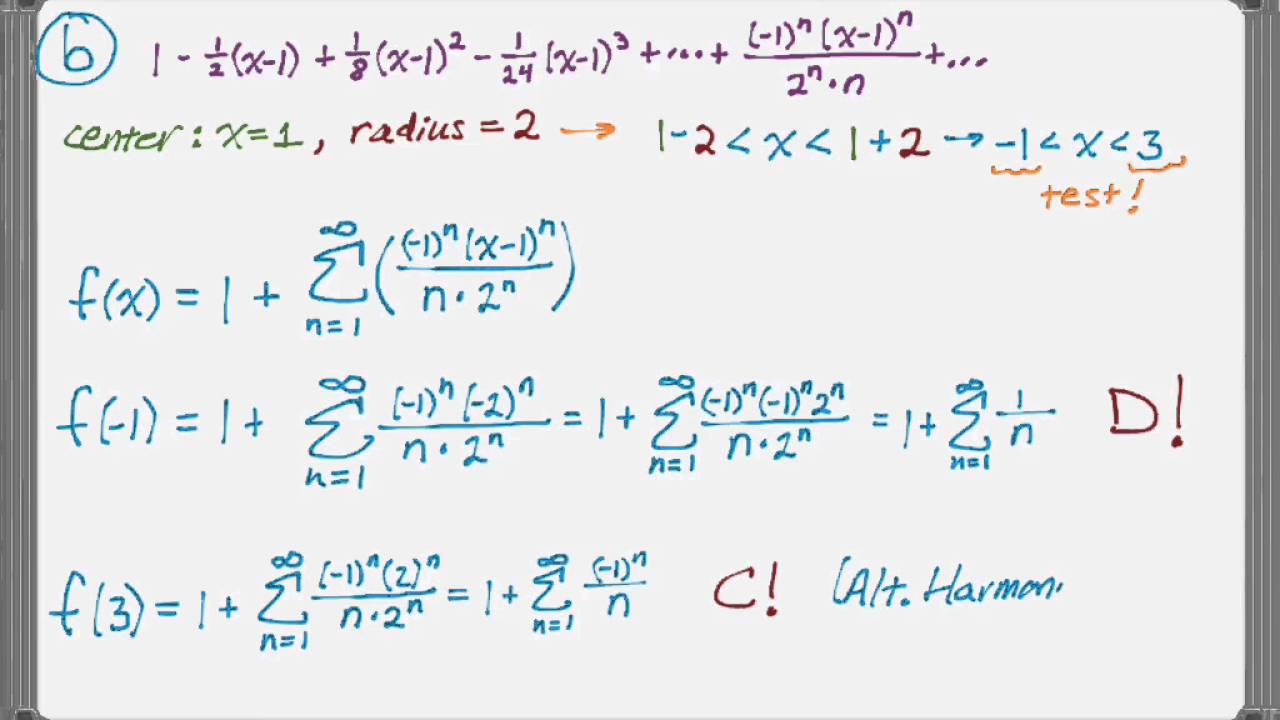 b 1 - 1/2(x-1) + 1/8(x-1)² - 1/24(x-1)³ + ... + (-1)ⁿ(x-1)ⁿ/(2ⁿ·n) + ...
center: x=1, radius = 2 → 1-2 < x < 1+2 → -1 < x < 3
test!
f(x) = 1 + ∑_{n=1}^{∞} ((-1)ⁿ(x-1)ⁿ/(n·2ⁿ))
f(-1) = 1 + ∑_{n=1}^{∞} (-1)ⁿ(-2)ⁿ/(n·2ⁿ) = 1 + ∑_{n=1}^{∞} (-1)ⁿ(-1)ⁿ2ⁿ/(n·2ⁿ) = 1 + ∑_{n=1}^{∞} 1/n D!
f(3) = 1 + ∑_{n=1}^{∞} (-1)ⁿ(2)ⁿ/(n·2ⁿ) = 1 + ∑_{n=1}^{∞} (-1)ⁿ/n C! (Alt. Harmoni